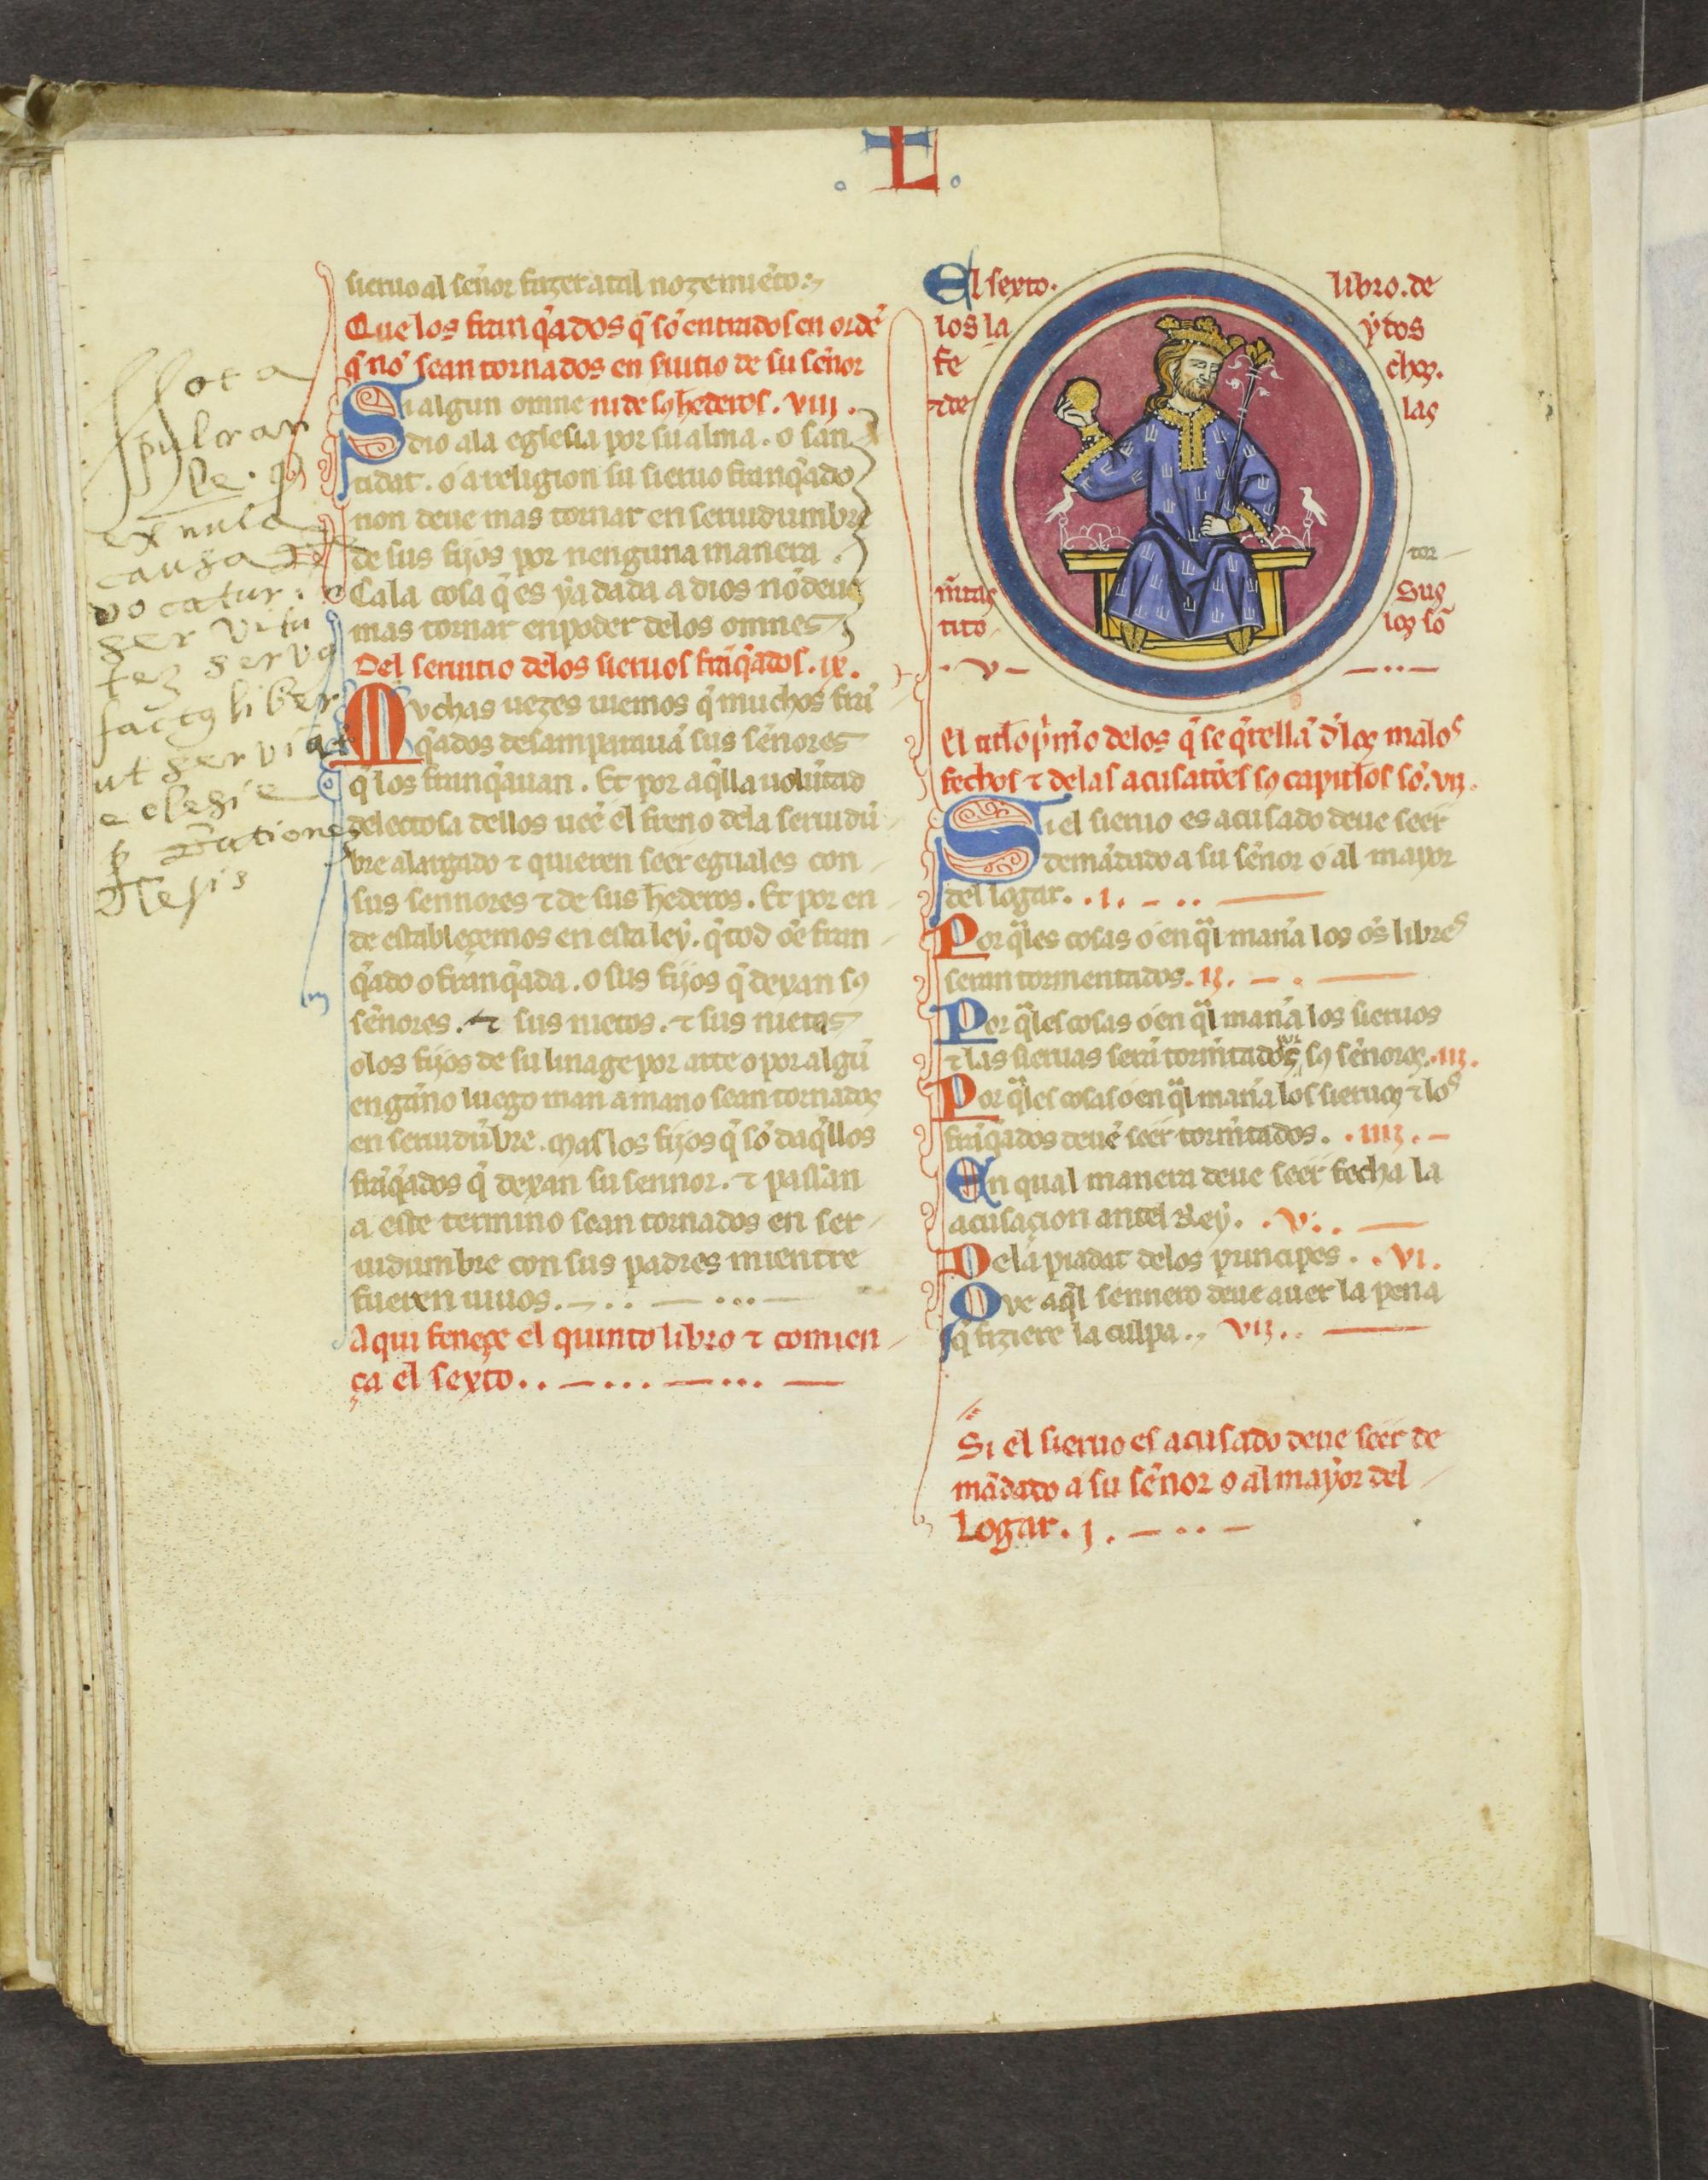 L
sieruo al señor fazer a tal nozemieto:
Que los franq̃ados q̃ sõ entrados en ordẽ
q̃ nõ sean tornados en suitio de su señor
Si algun omne ni de sꝯ hederos. viii.
dio ala eglesia por su alma. o san
tidat. o a religion su sieruo franq̃ado
non deue mas tornar en seruidumbre
de sus fijos por nenguna manera.
Ca la cosa q̃ es ya dada a dios nõ deue
mas tornar en poder delos omnes
Del seruitio delos sieruos frãq̃ados. ix.
Muchas uezes uiemos q̃ muchos frã
q̃ados desamparauã sus señores
q̃ los franq̃auan. Et por aq̃lla uolũtad
delectosa dellos ueẽ el freno dela seruidũ
bre alargado ⁊ quieren seer eguales con
sus sennores ⁊ de sus hederos. Et por en
de establecemos en esta ley. q̃ tod oẽ fran
q̃ado o franq̃ada. o sus fijos q̃ dexan sꝯ
señores. ⁊ sus nietos. ⁊ sus nietas
o los fijos de su linage por arte o por algũ
engãno luego man a mano sean tornados
en seruidũbre. mas los fijos q̃ sõ daq̃llos
frãq̃ados q̃ dexan su sennor. ⁊ passan
a este termino sean tornados en ser
uidumbre con sus padres mientre
fueren uiuos.
Aqui feneçe el quinto libro ⁊ comien
ça el sexto..
Nota
pulcran
ex nula
causa
vocatur
ser vitu
tez servꝯ
factꝯ liber
ut servi at
eclesie
El sexto. libro. de
los la ydos
fe chos.
⁊ de las
tor
m̃tas Sus
tito los sõ
. v
El titl̃o p̃m̃o delos q̃ se q̃rellã d̃los malos
fechos ⁊ delas acusatões sꝯ capitl̃os sõ. vii.
Si el sieruo es acusado deue seer
demãdado a su señor o al mayor
del logar. . i.
Por q̃les cosas o en q̃l mañA los oẽs libres
seran tormentados. ii.
Por q̃les cosas o en q̃l mañA los sieruos
⁊ las sieruas serã torm̃tados por sꝯ señores. iii.
Por q̃les cosas o en q̃l mañA los sieruos ⁊ los
frãq̃ados deuẽ seer torm̃tados. . iiii.
En qual manera deue seer fecha la
acusaçion antel Rey. . v.
Dela piadat delos principes. . vi.
Que aq̃l sennero deue auer la pena
q̃ fiziere la culpa. vii.
Si el sieruo es acusado deue seer de
mãdado a su señor o al mayor del
Logar. j.